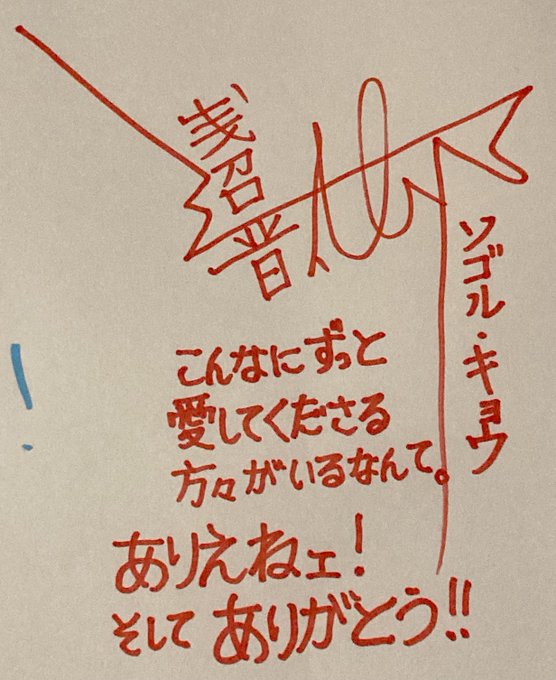 浅沼晋太郎
ソゴル・キョウ
こんなにずっと
愛してくださる
方々がいるなんて。
ありえねェ!
そしてありがとう!!